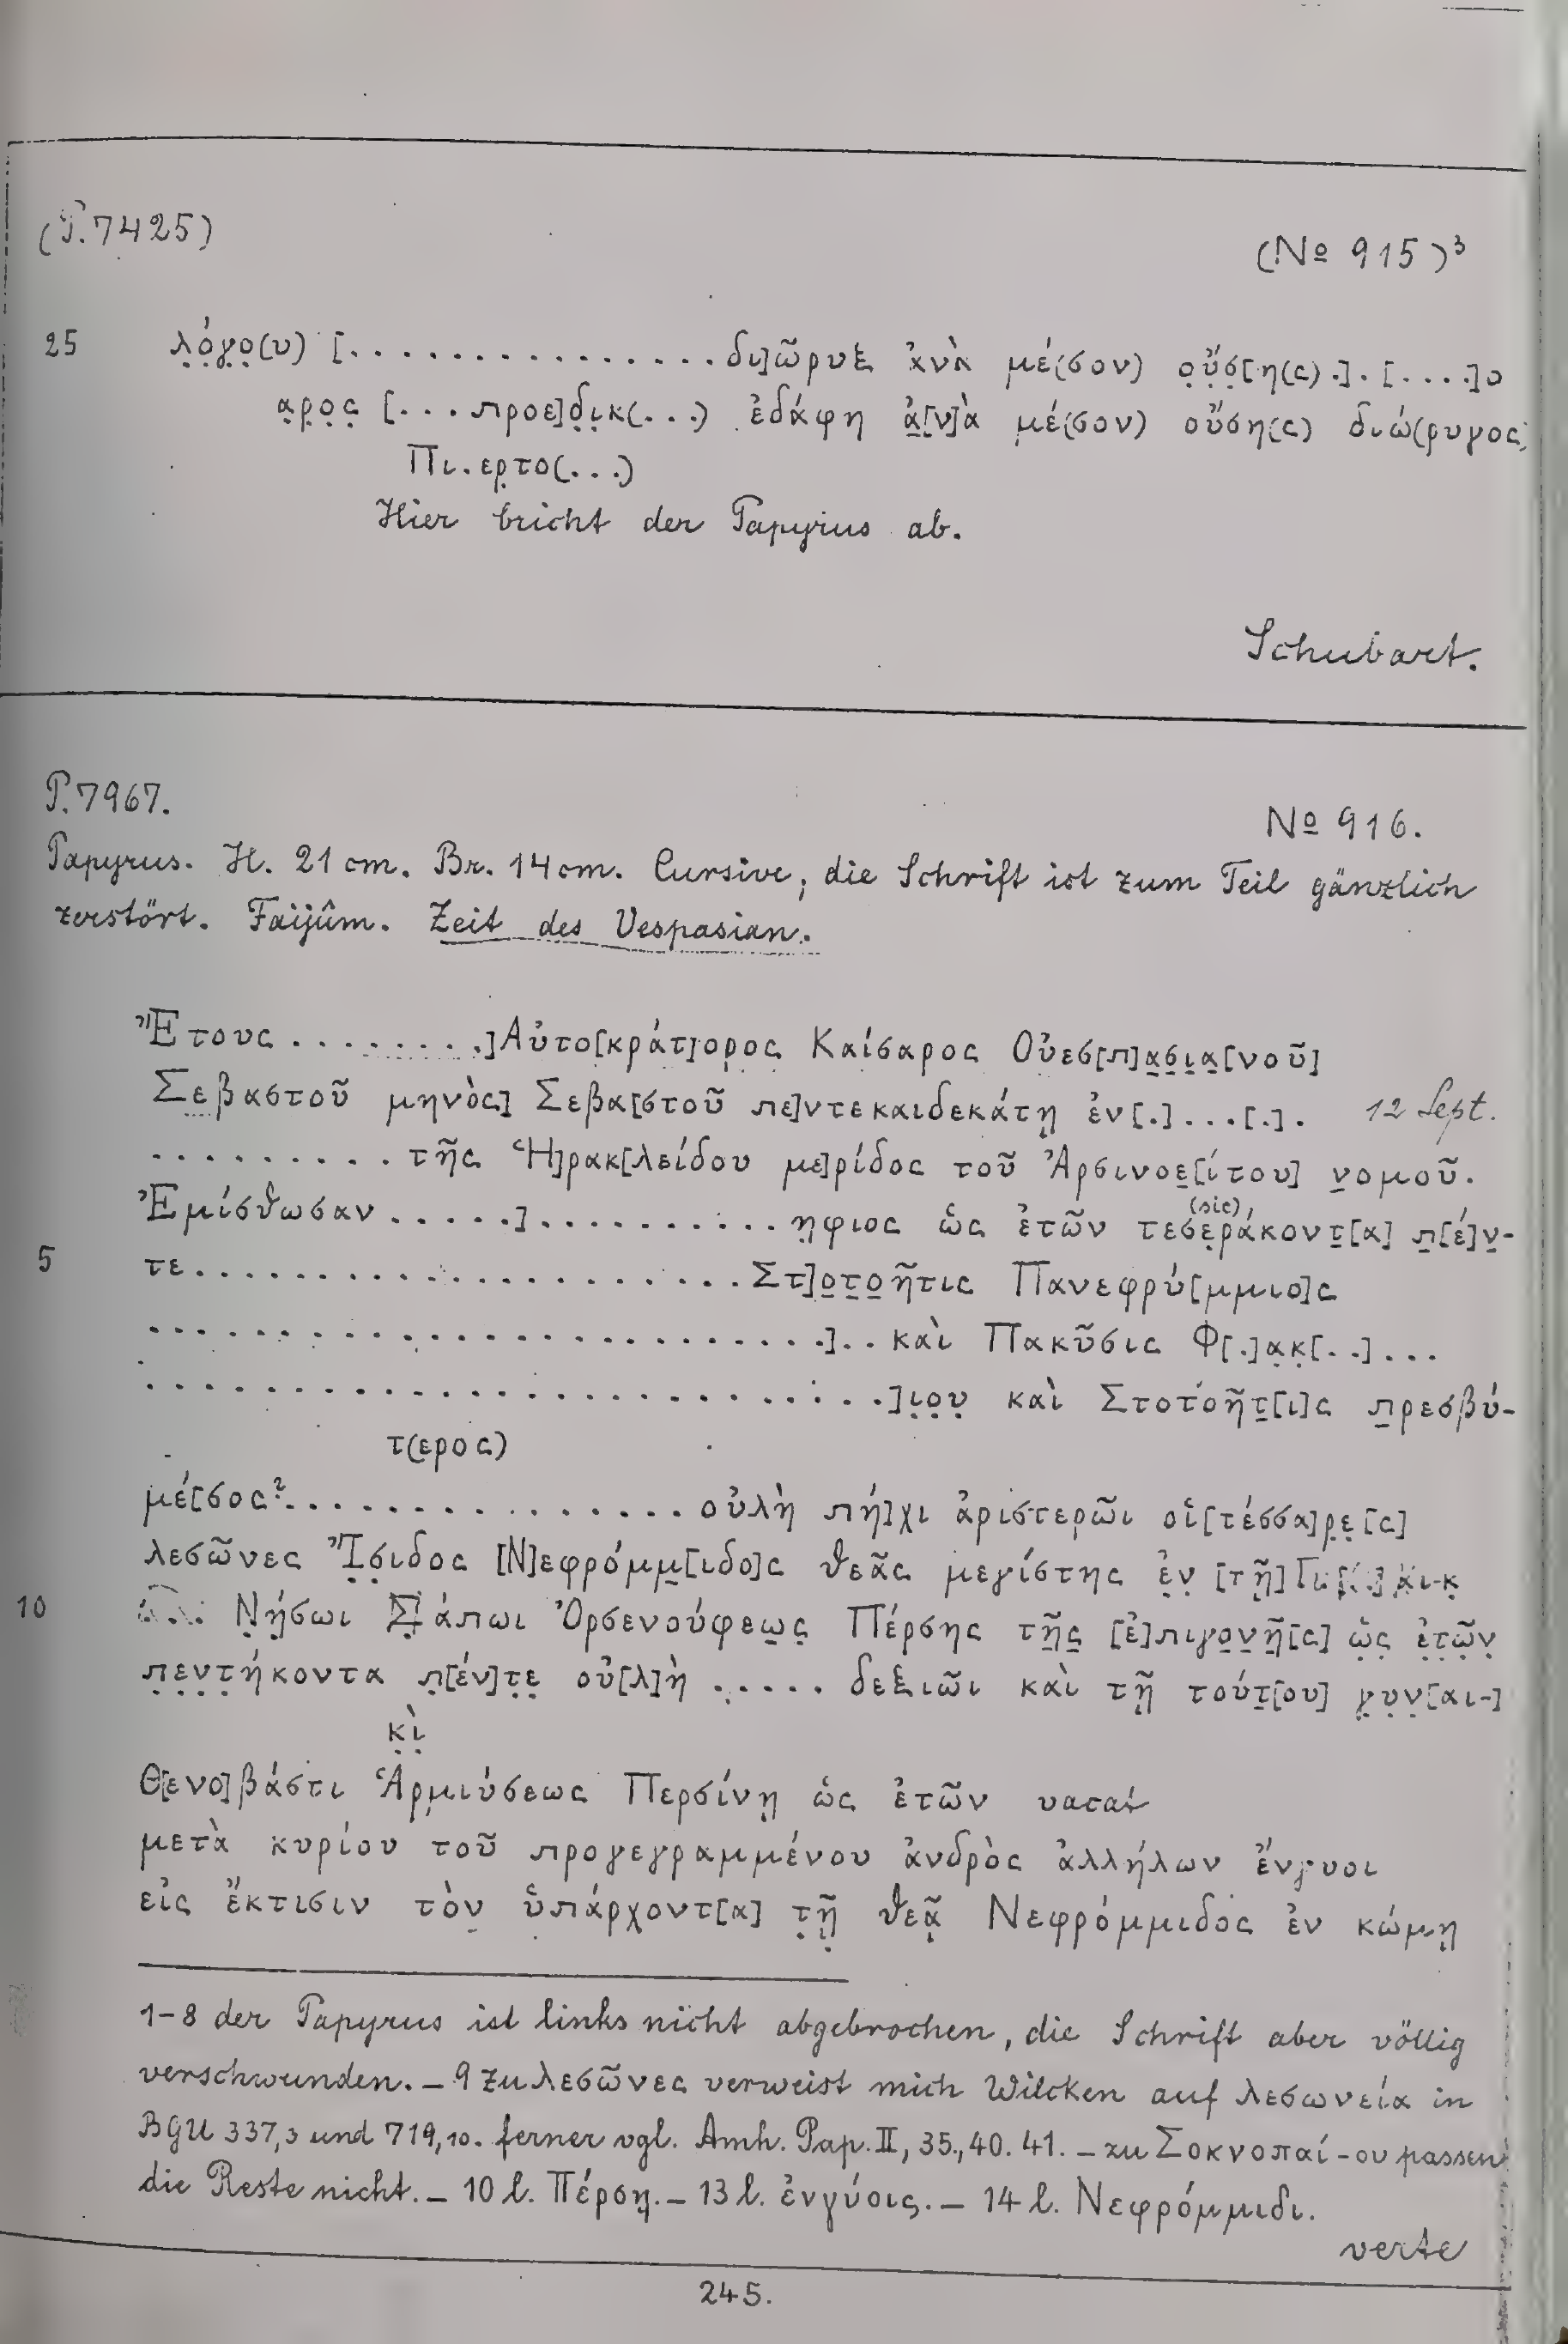 (P. 7425)
(No 915)³
25 λ̣ό̣γ̣ο̣(υ) [...............δι]ῶρυξ ἀνὰ μέ(σον) ο̣ὔ̣σ̣[η(ς) .]. [....]ο
α̣ρ̣ο̣ς̣ [...προε]δ̣ι̣κ(...) ἐδάφη ἀ̣[ν]ὰ μέ(σον) οὔση(ς) διώ(ρυγος)
Πι.ερ̣το(...)
Hier bricht der Papyrus ab.
Schubart.
P. 7967.
No 916.
Papyrus. H. 21 cm. Br. 14 cm. Cursive, die Schrift ist zum Teil gänzlich
zerstört. Faijûm. Zeit des Vespasian.
Ἔτους .........]Αὐτο[κράτ]ορος Καίσαρος Οὐεσ[π]α̣σ̣ι̣α̣[νοῦ]
Σεβαστοῦ μηνὸς] Σεβα[στοῦ πε]ντεκαιδεκάτῃ ἐν[.]...[.]. 12 Sept.
..........τῆς Ἡ]ρακ[λείδου με]ρίδος τοῦ Ἀρσινοε̣[ίτου] ν̣ομοῦ.
(sic)
Ἐμίσθωσαν.....]..........η̣φιος ὡς ἐτῶν τεσε̣ράκοντ̣[α] π̣[έ]ν̣-
5 τε....................Στ]ο̣τ̣ο̣ῆτις Πανεφρύ[μμιο]ς
.........................].. καὶ Πακῦσις Φ[.]α̣κ̣[..]...
...........................]ι̣ο̣υ̣ καὶ Στοτοῆτ̣[ι]ς π̣ρεσβύ-
τ(ερος)
μέ[σος?...............οὐλὴ πή]χι ἀριστερῶι οἱ [τέσσα]ρ̣ε̣[ς]
λεσῶνες Ἴ̣σ̣ιδος [Ν]εφρόμμ̣[ιδο]ς θεᾶς μεγίστης ἐ̣ν̣ [τῇ]
10 Ν̣ή̣σωι Σάπωι Ὀρσενούφεω̣ς̣ Πέρσης τῆ̣ς̣ [ἐ]πιγο̣ν̣ῆ̣[ς] ὡ̣ς̣ ἐ̣τ̣ῶ̣ν̣
π̣ε̣ν̣τ̣ήκοντα π̣[έν]τ̣ε̣ οὐ[λ]ὴ ...... δεξιῶι καὶ τῇ τούτ̣[ου] γ̣υ̣ν̣[αι-]
κ̣ὶ̣
Θ[ενο]βάστι Ἁρμιύσεως Περσίνῃ ὡς ἐτῶν vacat
μετὰ κυρίου τοῦ προγεγραμμένου ἀνδρὸς ἀλλήλων ἔνγυοι
εἰς ἔκτισιν τὸν ὑπάρχοντ[α] τ̣ῇ̣ θεᾷ Νεφρόμμιδος ἐν κώμῃ
1-8 der Papyrus ist links nicht abgebrochen, die Schrift aber völlig
verschwunden. – 9 zu λεσῶνες verweist mich Wilcken auf λεσωνεία in
BGU 337,3 und 719,10. ferner vgl. Amh. Pap. II, 35., 40. 41. – zu Σοκνοπαί-ου passen
die Reste nicht. – 10 l. Πέρσῃ. – 13 l. ἐνγύοις. – 14 l. Νεφρόμμιδι.
verte
245.